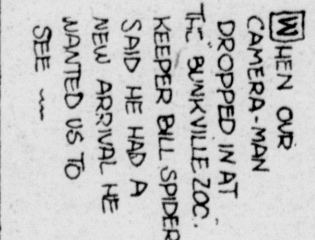 WHEN OUR
CAMERA-MAN
DROPPED IN AT
THE "BUNKVILLE ZOO".
KEEPER BILL SPIDER
SAID HE HAD A
NEW ARRIVAL HE
WANTED US TO
SEE ~~